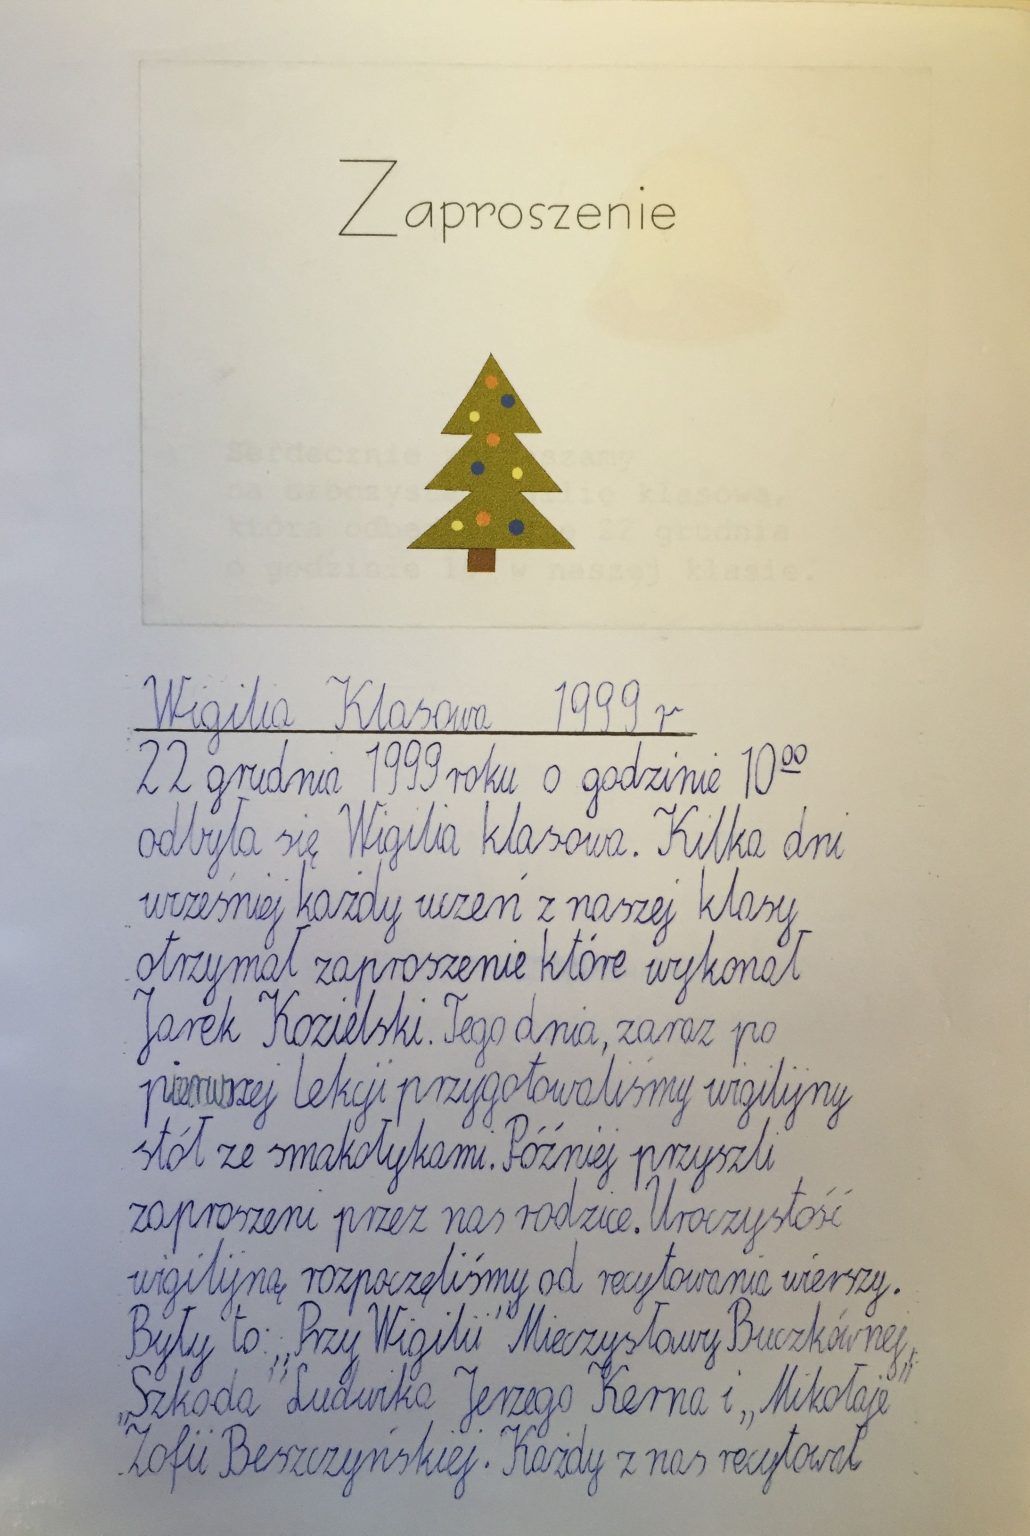 Zaproszenie
Serdecznie
klasową,
która 22 grudnia
o godzinie w naszej klasie.
Wigilia Klasowa 1999 r
22 grudnia 1999 roku o godzinie 10⁰⁰
odbyła się Wigilia klasowa. Kilka dni
wcześniej każdy uczeń z naszej klasy
otrzymał zaproszenie które wykonał
Jarek Kozielski. Tego dnia, zaraz po
pierwszej lekcji przygotowaliśmy wigilijny
stół ze smakołykami. Później przyszli
zaproszeni przez nas rodzice. Uroczystość
wigilijną rozpoczęliśmy od recytowania wierszy.
Były to: „Przy Wigilii" Mieczysławy Buczkównej,
„Szkoda" Ludwika Jerzego Kerna i „Mikołaje"
Zofii Beszczyńskiej. Każdy z nas recytował